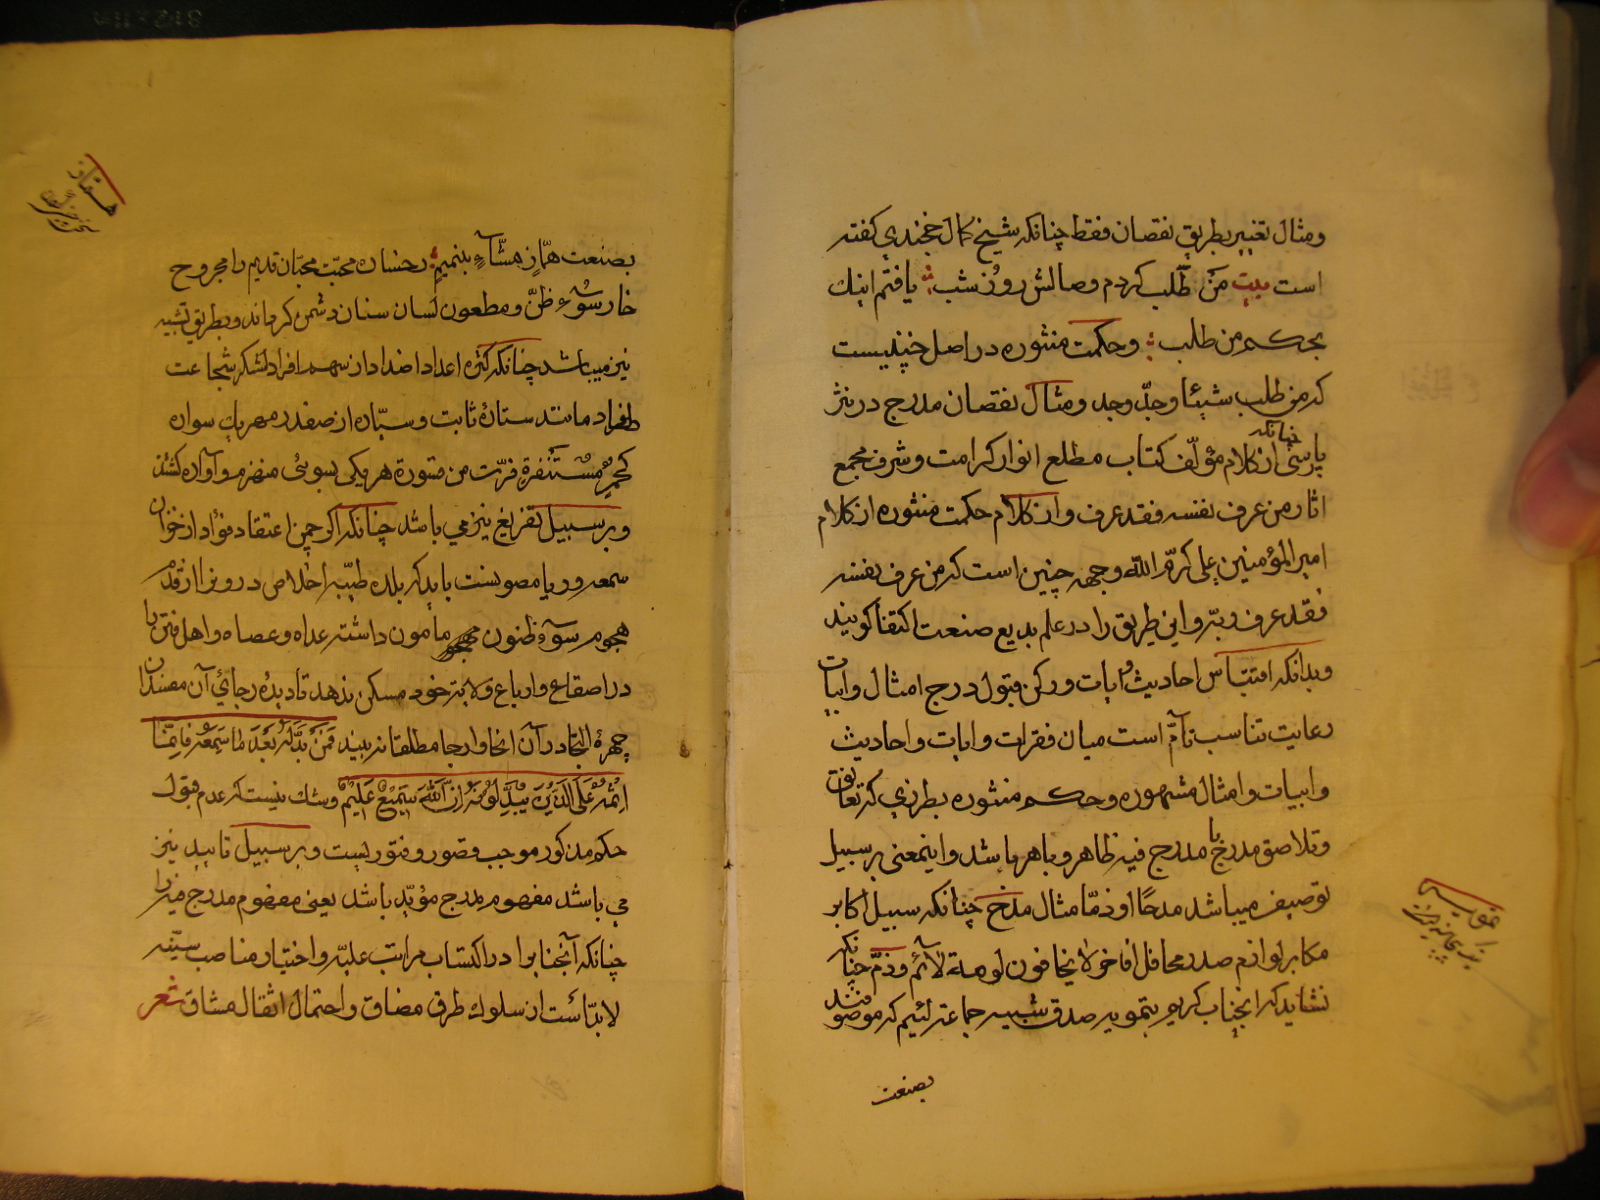 ومثال تغییر بطریق نقصان فقط چنانکه شیخ کمال خجندی کفته
است بیت من طلب کردم وصالش روز شب یافتم اینك
بحکم من طلب وحکمت منثوره در اصل چنینست
که من طلب شیئا وجدّ وجد ومثال نقصان مدرج در نثر
پارسی چنانکه از کلام مؤلّف کتاب مطلع انوار کرامت وشرف مجمع
اثار من عرف نفسه فقد عرف واز کلام حکمت منثوره از کلام
امیر المؤمنین علی کرّم الله وجهه چنین است که من عرف نفسه
فقد عرف ربّه واین طریق را در علم بدیع صنعت اکتفا کویند
وبدانکه اقتباس احادیث وایات ورکن قبول درج امثال وابیات
رعایت تناسب تآمّ است میان فقرات وایات واحادیث
وابیات وامثال مشهوره وحکم منثوره بطرزی که تعانق
وتلاصق مدرج با مدرج فیه ظاهر وباهر باشد واینمعنی بر سبیل
توصیف میباشد مدحًا او ذمّا مثال مدح چنانکه سبیل اکابر
مکابر لوازم صدر محافل افاخر لا یخافون لومة لآئم وذمّ چنانکه
نشاید که انجناب کریم بتمویه صدق شبیه جماعة لئیم که موصوفند
بصنعت
بصنعت همّاز مشّآء بنمیم رخسار محبّت محبّان قدیم را مجروح
خار سوء ظنّ ومطعون لسان سنان دشمن کرداند وبطریق تشبیه
نیز میباشد چنانکه کثرة اعداد اضداد از سهم افراد لشکر شجاعت
مانند ستارهٔ ثابت وسیّاره از صفدر مهر یك سواره
کحمر مستنفرة فرّت من قسورة هر یکی بسوئی منهزم وآواره کشتند
وبر سبیل تفریغ نیز می باشد چنانکه اکر چمن اعتقاد فؤاد از خزان
سمعه وریا مصونست باید که بلده طیّبه اخلاص درونرا از
هجوم سوء ظنون مامون داشته عداه وعصاه واهل فتن را
در اصقاع وارباع ولایت خود مسکن ندهد تا دیدهٔ رجائی آن مفسدان
چهرهٔ التجا در آن انحا وارجا مطلقا نه بیند فمن بدّله بعد ما سمعه فانّما
اثمه علی الّذین یبدّلونه انّ الله سمیع علیم وشك نیست که عدم قبول
حکم مذکور موجب قصور وفتور است وبر سبیل تایید نیز
می باشد مفهوم مدرج مؤیّد باشد یعنی مفهوم مدرج فیه را
چنانکه آنجنابرا در اکتساب مراتب علیّه واختیار مناصب سنیّه
لا بدّ است از سلوك طرق مضاق واحتمال اثقال مشاق شعر